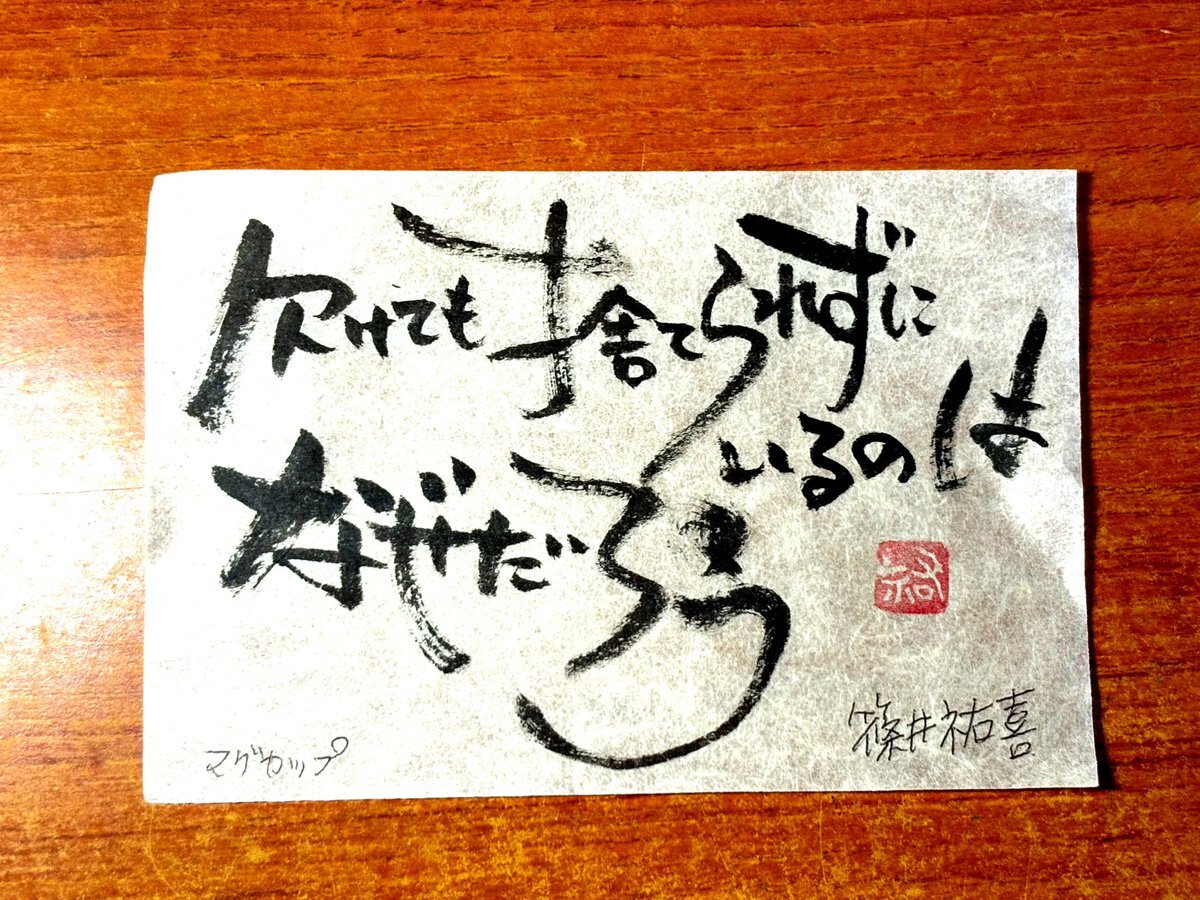 欠けても捨てられずに
いるのは
なぜだろう
マグカップ
篠井祐喜